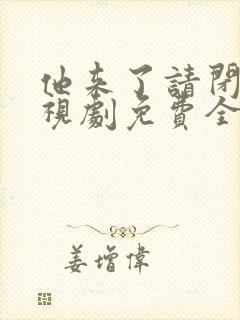 他来了請閉
視劇免費全
姜增偉